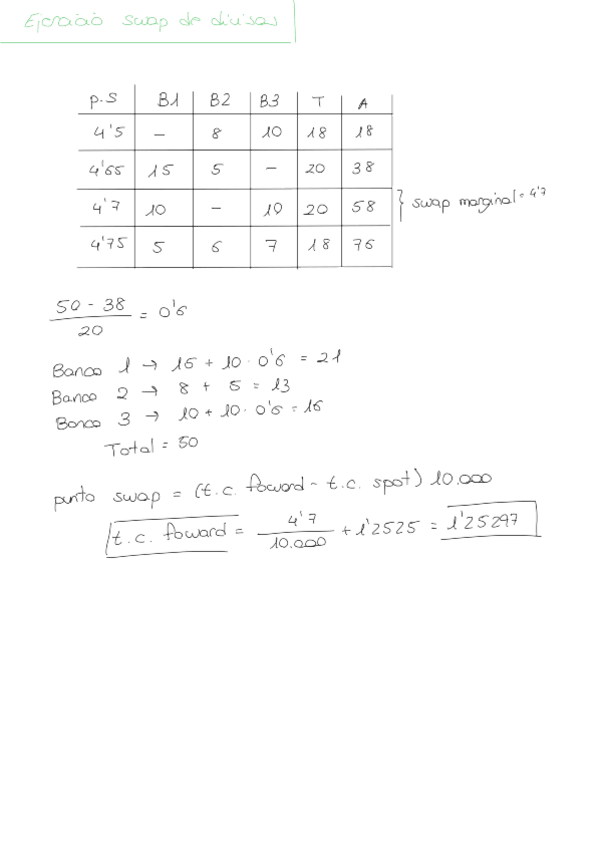 Ejercicio swap de divisas
P.S B1 B2 B3 T A
4'5 - 8 10 18 18
4'65 15 5 - 20 38
4'7 10 - 10 20 58
4'75 5 6 7 18 76
swap marginal = 4'7
50 - 38
20
= 0'6
Banco 1 → 15 + 10 · 0'6 = 21
Banco 2 → 8 + 5 = 13
Banco 3 → 10 + 10 · 0'6 = 16
Total = 50
punto swap = (t.c. foward - t.c. spot) 10.000
t.c. foward = 4'7
10.000
+ 1'2525 = 1'25297